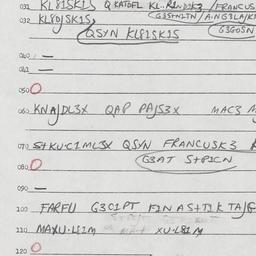 031 KL81SK1S QKATOFL KL..R1WDSK3 / FRANCUS
032 KL8OJSK1S, G3SFN2TN / A1NG3LAJK
QSYN KL81SK1S G3GOSN
040 —
041 —
050 O
060 KNAJDL3X QAP PAJS3X MAC3
070 S+KUC1ML3X QSYN FRANCUSK3
080 O G3AT S+P1CN
090 —
100 FARFU G3C1PT F1NAS+T1K TAJG
110 MAXU.L81M XU.L81M
120 O